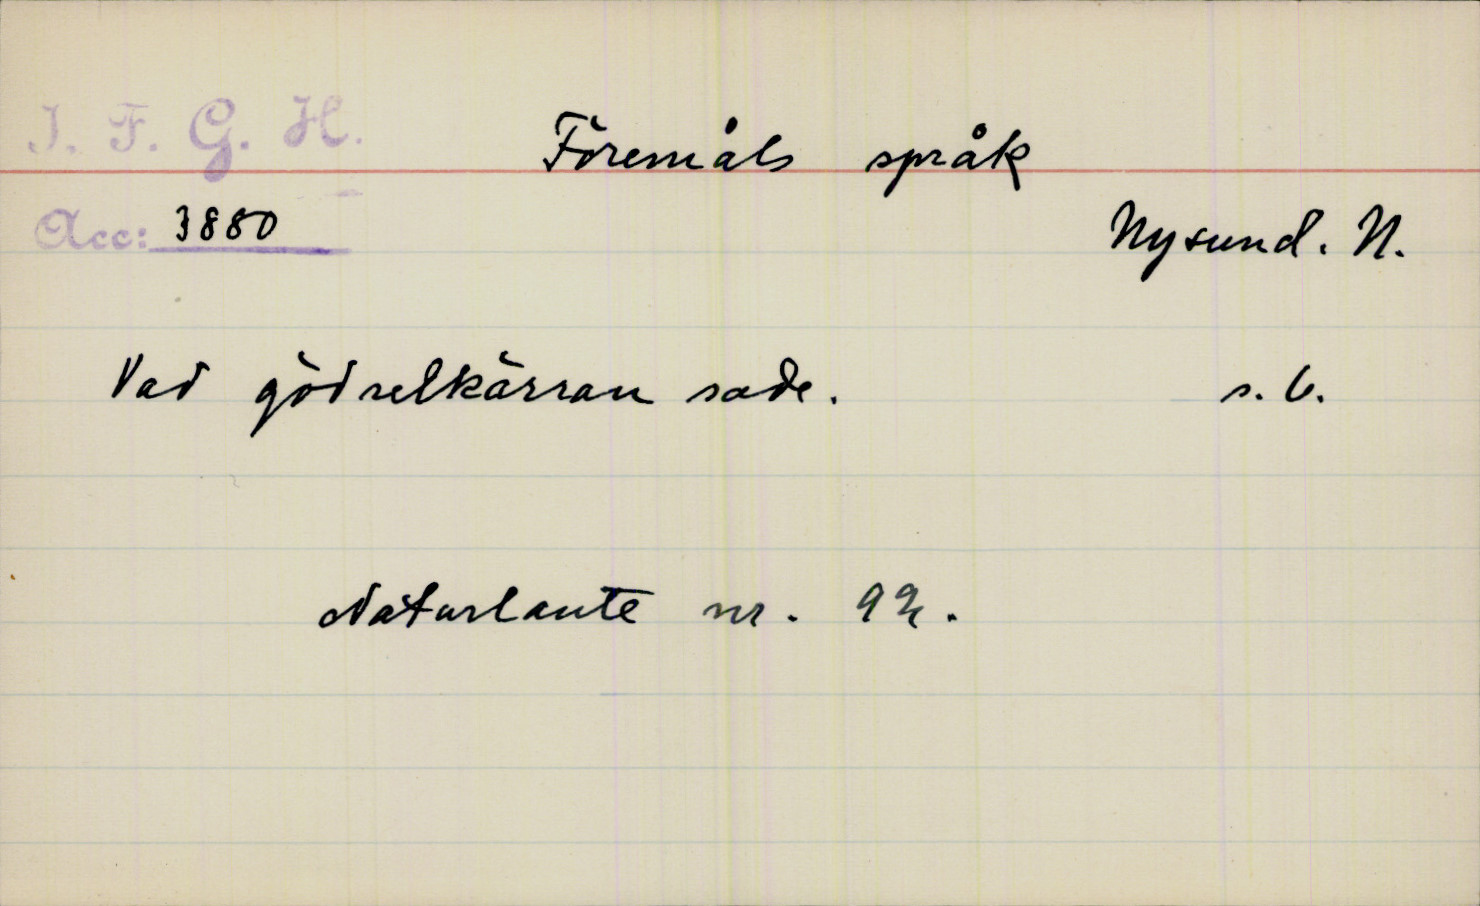 I. F. G. H.
Föremåls språk
Acc: 3880
Nysund. N.
Vad gödselkärran sade. s. 6.
Naturlaute nr.